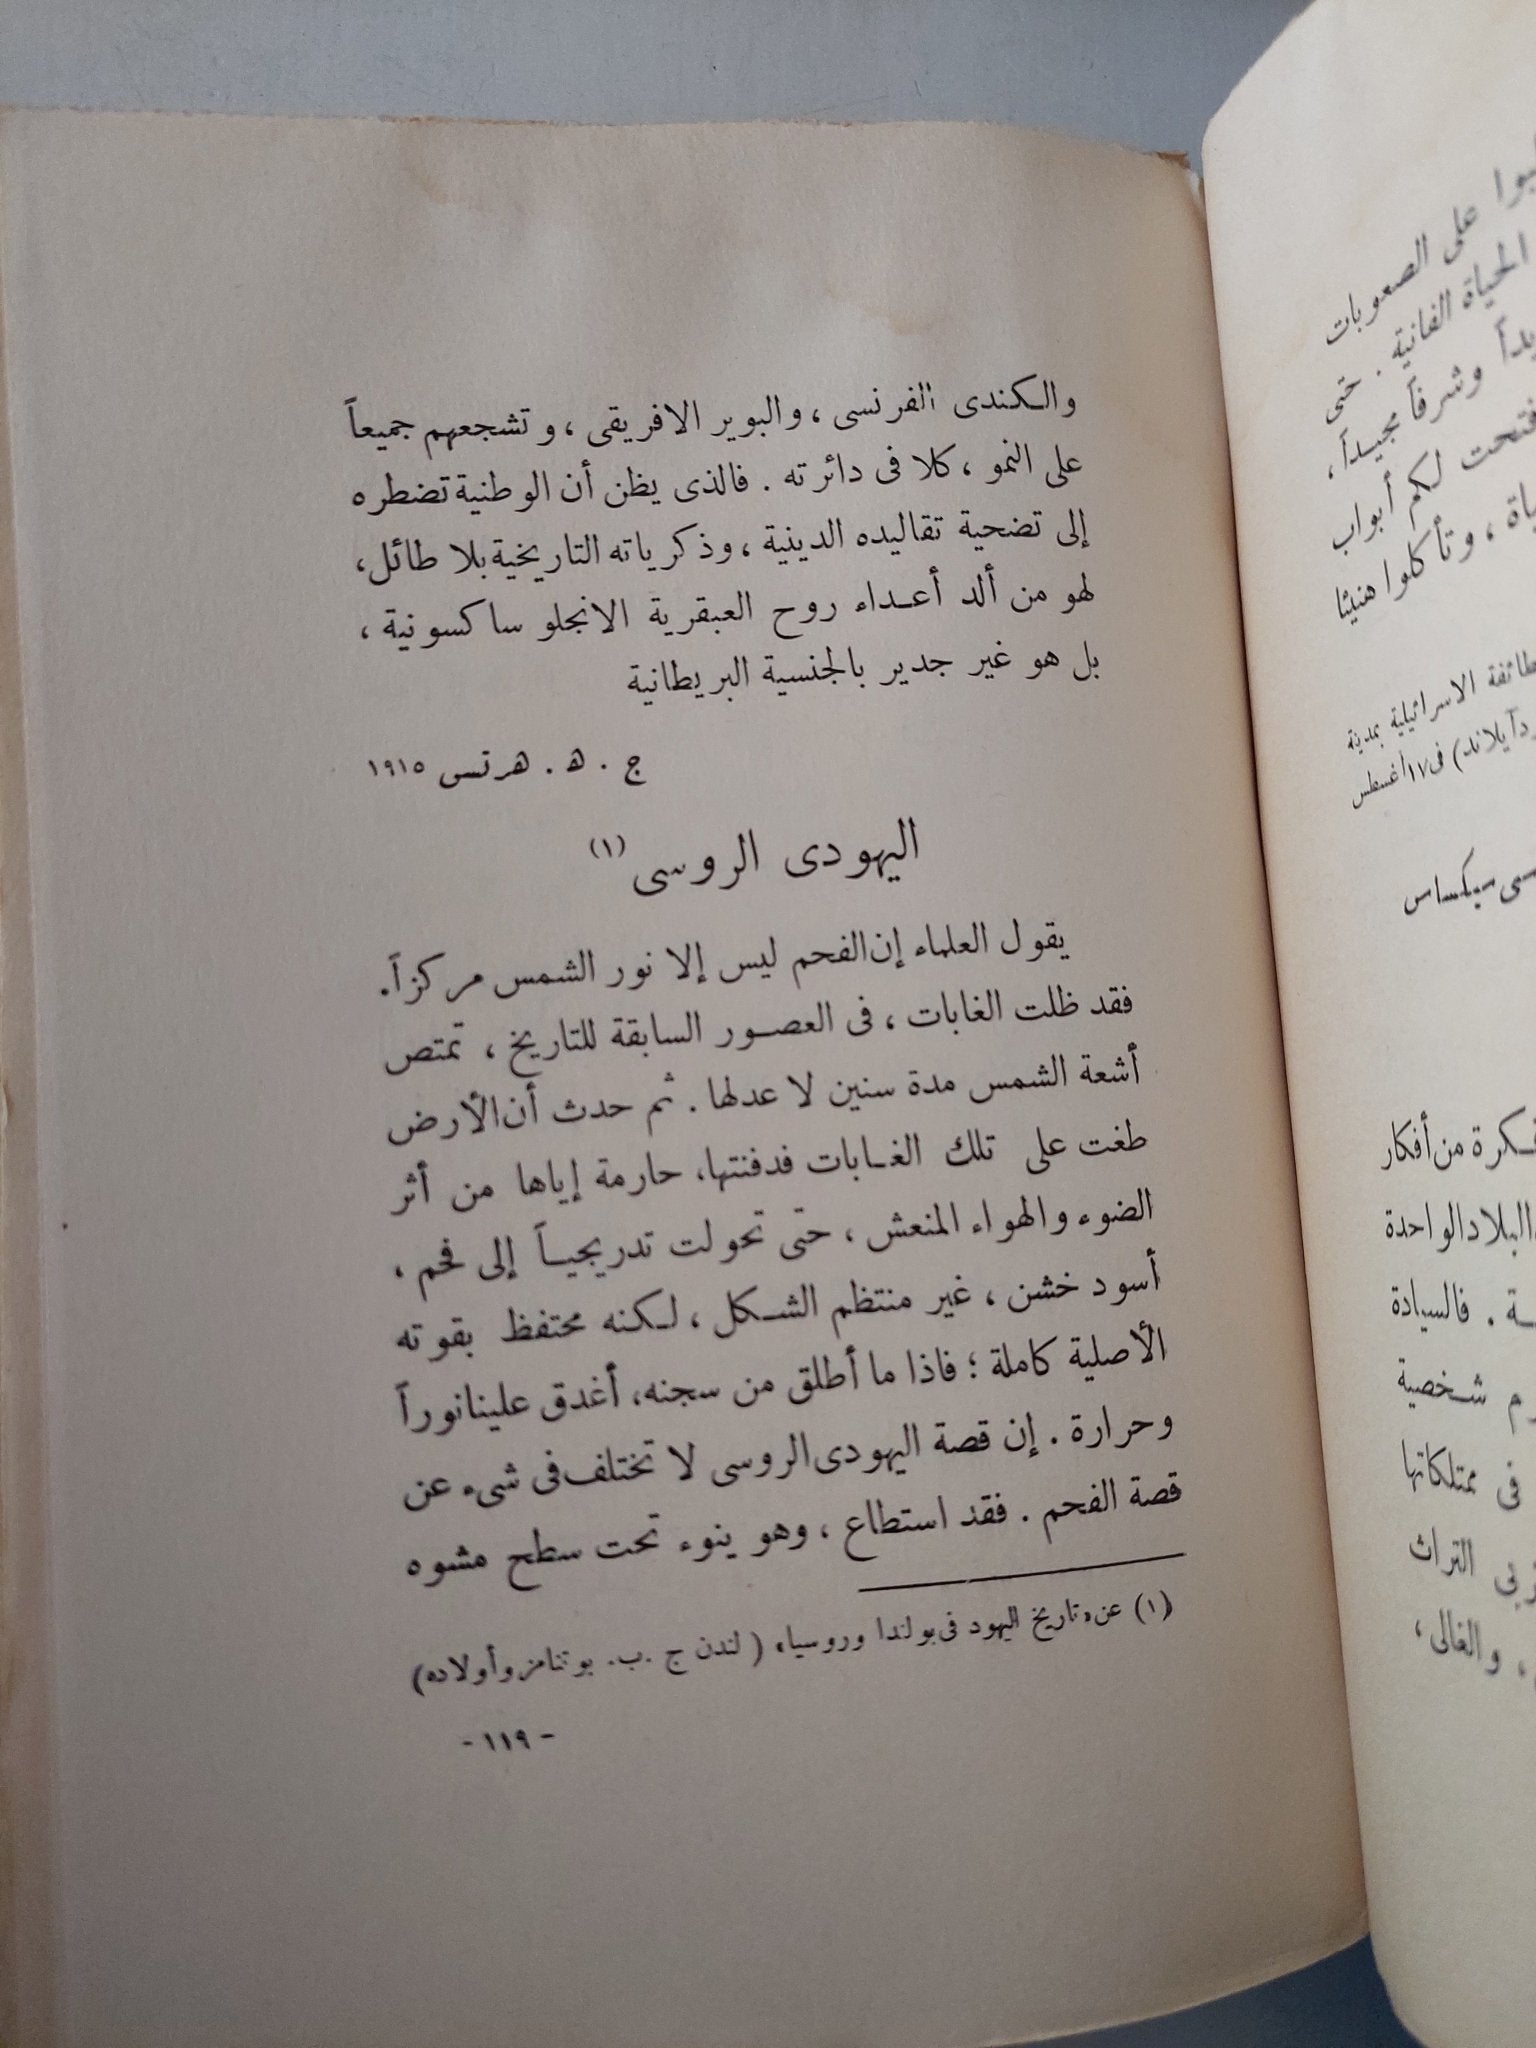 والكندى الفرنسى ، والبوير الافريقى ، وتشجعهم جميعاً
على النمو ، كلا فى دائرته . فالذى يظن أن الوطنية تضطره
إلى تضحية تقاليده الدينية ، وذكرياته التاريخية بلا طائل ،
لهو من ألد أعداء روح العبقرية الانجلو ساكسونية ،
بل هو غير جدير بالجنسية البريطانية
ج . ه . هرتس ١٩١٥
اليهودى الروسى (١)
يقول العلماء إن الفحم ليس إلا نور الشمس مركزاً .
فقد ظلت الغابات ، فى العصور السابقة للتاريخ ، تمتص
أشعة الشمس مدة سنين لا عدلها . ثم حدث أن الأرض
طغت على تلك الغابات فدفنتها ، حارمة إياها من أثر
الضوء والهواء المنعش ، حتى تحولت تدريجياً إلى فحم ،
أسود خشن ، غير منتظم الشكل ، لكنه محتفظ بقوته
الأصلية كاملة ؛ فاذا ما أطلق من سجنه ، أغدق علينا نوراً
وحرارة . إن قصة اليهودى الروسى لا تختلف فى شىء عن
قصة الفحم . فقد استطاع ، وهو ينوء تحت سطح مشوه
(١) عن «تاريخ اليهود فى بولندا وروسيا» ( لندن ج . ب . بوتنامز وأولاده )
- ١١٩ -
على الصعوبات
الحياة الفانية . حتى
وشرفاً مجيداً ،
لكم أبواب
، وتأكلوا هنيئا
الاسرائيلية بمدينة
فى ١٧ أغسطس
سيكساس
من أفكار
البلاد الواحدة
. فالسيادة
شخصية
فى ممتلكاتها
التراث
، والغالى ،